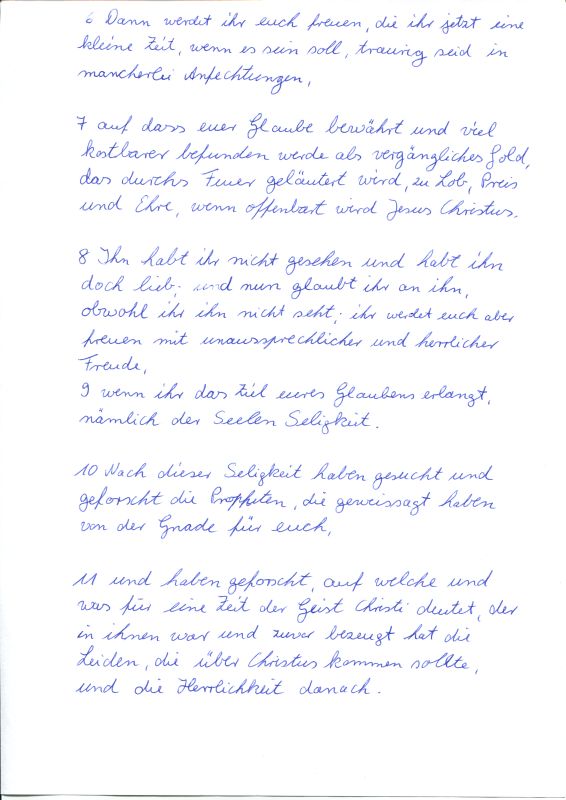 6 Dann werdet ihr euch freuen, die ihr jetzt eine
kleine Zeit, wenn es sein soll, traurig seid in
mancherlei Anfechtungen,
7 auf dass euer Glaube bewährt und viel
kostbarer befunden werde als vergängliches Gold,
das durchs Feuer geläutert wird, zu Lob, Preis
und Ehre, wenn offenbart wird Jesus Christus.
8 Ihn habt ihr nicht gesehen und habt ihn
doch lieb; und nun glaubt ihr an ihn,
obwohl ihr ihn nicht seht; ihr werdet euch aber
freuen mit unaussprechlicher und herrlicher
Freude,
9 wenn ihr das Ziel eures Glaubens erlangt,
nämlich der Seelen Seligkeit.
10 Nach dieser Seligkeit haben gesucht und
geforscht die Propheten, die geweissagt haben
von der Gnade für euch,
11 und haben geforscht, auf welche und
was für eine Zeit der Geist Christi deutet, der
in ihnen war und zuvor bezeugt hat die
Leiden, die über Christus kommen sollte,
und die Herrlichkeit danach.